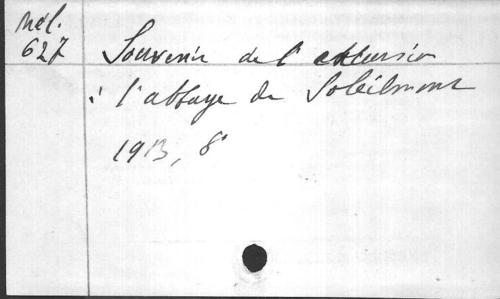 Mél.
627
Souvenir de l'excursion
à l'abbaye de Soleilmont
1913, 8°